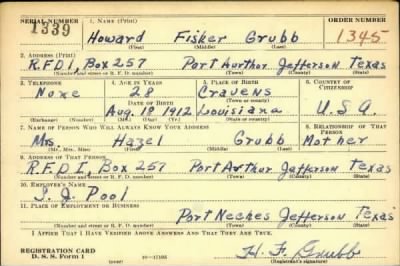 SERIAL NUMBER 1. NAME (Print) ORDER NUMBER
1339 Howard Fisker Grubb 1345
(First) (Middle) (Last)
2. ADDRESS (Print)
R.F.D.1, Box 257 Port Aurthor Jefferson Texas
(Number and street or R. F. D. number) (Town) (County) (State)
3. TELEPHONE 4. AGE IN YEARS 5. PLACE OF BIRTH 6. COUNTRY OF CITIZENSHIP
None 28 Cravens
DATE OF BIRTH (Town or county)
Aug. 18 1912 Louisiana U.S.A.
(Exchange) (Number) (Mo.) (Day) (Yr.) (State or country)
7. NAME OF PERSON WHO WILL ALWAYS KNOW YOUR ADDRESS 8. RELATIONSHIP OF THAT PERSON
Mrs. Hazel Grubb Mother
(Mr., Mrs., Miss) (First) (Middle) (Last)
9. ADDRESS OF THAT PERSON
R.F.D.1. Box 257 Port Arthur Jefferson Texas
(Number and street or R. F. D. number) (Town) (County) (State)
10. EMPLOYER'S NAME
Pool
11. PLACE OF EMPLOYMENT OR BUSINESS
Port Neches Jefferson Texas
(Number and street or R. F. D. number) (Town) (County) (State)
I AFFIRM THAT I HAVE VERIFIED ABOVE ANSWERS AND THAT THEY ARE TRUE.
REGISTRATION CARD
D. S. S. Form 1 H. F. Grubb
(Registrant's signature)